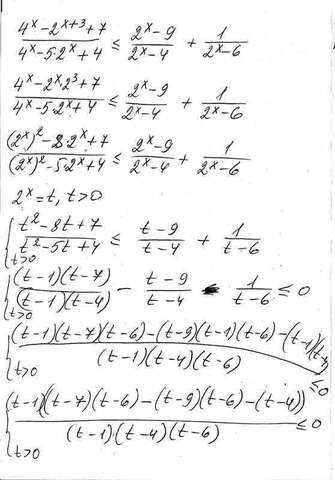 (4^x - 2^(x+3) + 7)/(4^x - 5·2^x + 4) ≤ (2^x - 9)/(2^x - 4) + 1/(2^x - 6)
(4^x - 2^x 2^3 + 7)/(4^x - 5·2^x + 4) ≤ (2^x - 9)/(2^x - 4) + 1/(2^x - 6)
((2^x)^2 - 8·2^x + 7)/((2^x)^2 - 5·2^x + 4) ≤ (2^x - 9)/(2^x - 4) + 1/(2^x - 6)
2^x = t, t>0
{ (t^2 - 8t + 7)/(t^2 - 5t + 4) ≤ (t - 9)/(t - 4) + 1/(t - 6)
t>0
{ (t-1)(t-7)/((t-1)(t-4)) - (t-9)/(t-4) - 1/(t-6) ≤ 0
t>0
{ ((t-1)(t-7)(t-6) - (t-9)(t-1)(t-6) - (t-1)(t-4))/((t-1)(t-4)(t-6)) ≤ 0
t>0
{ (t-1)((t-7)(t-6) - (t-9)(t-6) - (t-4))/((t-1)(t-4)(t-6)) ≤ 0
t>0